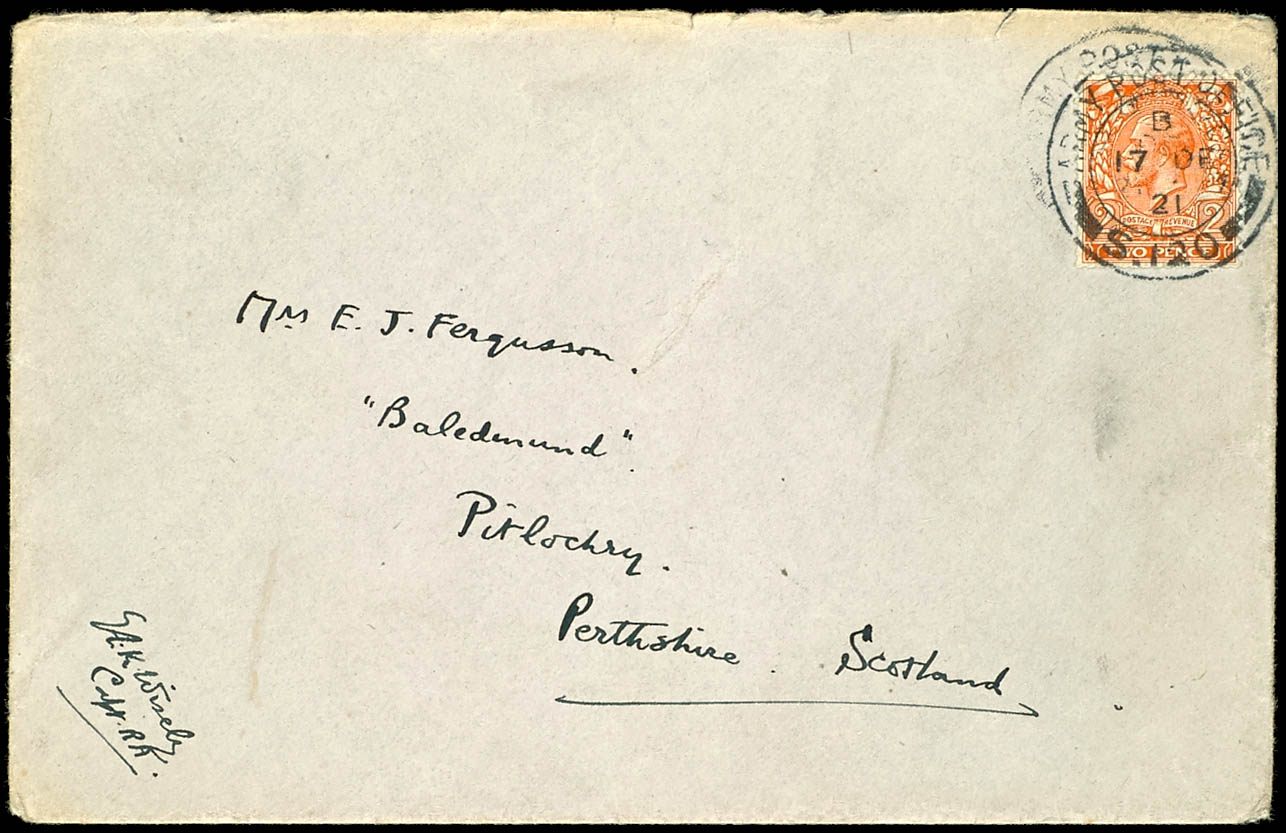 ARMY POST OFFICE
B
17 DE
21
S.120
POSTAGE REVENUE
2 2
TWO PENCE
Mrs E. J. Fergusson.
"Baledmund".
Pitlochry.
Perthshire. Scotland
G.A.K. Wisely
Capt. RA.